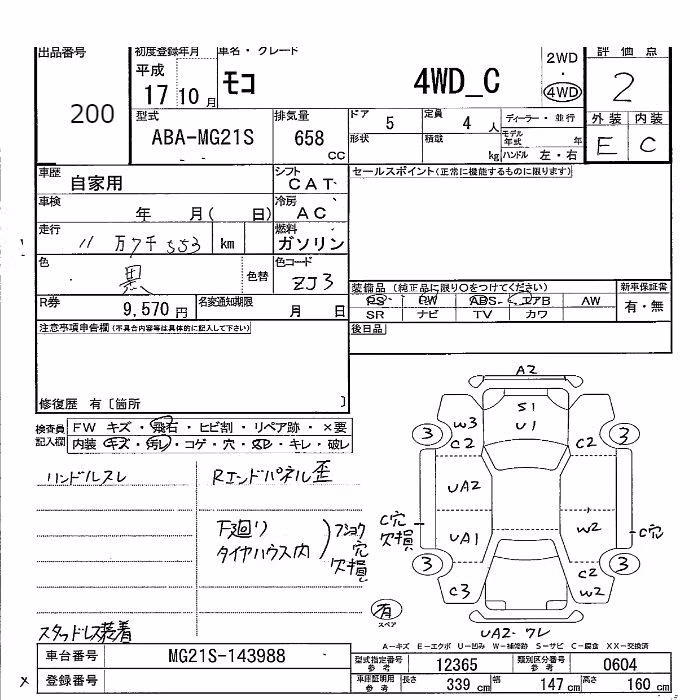 出品番号 初度登録年月 車名・グレード 2WD 評価点
200 平成 17 10月 モコ 4WD_C ・ 4WD 2
型式 排気量 ドア 5 定員 4 人 ディーラー・並行 外装 内装
ABA-MG21S 658 cc 形状 積載 kg モデル年式 年 E C
ハンドル 左・右
車歴 自家用 シフト CAT セールスポイント(正常に機能するものに限ります)
車検 年 月( 日) 冷房 AC
走行 11万7千553 km 燃料 ガソリン
色 黒 色替 色コード ZJ3
装備品 (純正品に限り○をつけてください) 新車保証書
R券 9,570円 名変通知期限 月 日 PS PW ABS エアB AW 有・無
SR ナビ TV カワ
注意事項申告欄(不具合内容等は具体的に記入して下さい) 後日品
修復歴 有〔箇所 〕
検査員 FW キズ・飛石・ヒビ割・リペア跡・×要
記入欄 内装 キズ・汚レ・コゲ・穴・スレ・キレ・破レ
ハンドルスレ Rエンドパネル歪
下廻り
タイヤハウス内
フショク
穴
欠損
スタッドレス装着
A2
S1
U1
W3
3 C2 C2 3
UA2
C穴 欠損 UA1 W2 C穴
3 C2 3
C3 W2
有
スペア
UA2・ワレ
A-キズ E-エクボ U-凹み W-補修跡 S-サビ C-腐食 XX-交換済
車台番号 MG21S-143988 型式指定番号 参考 12365 類別区分番号 参考 0604
x 登録番号 車庫証明用 参考 長さ 339 cm 幅 147 cm 高さ 160 cm